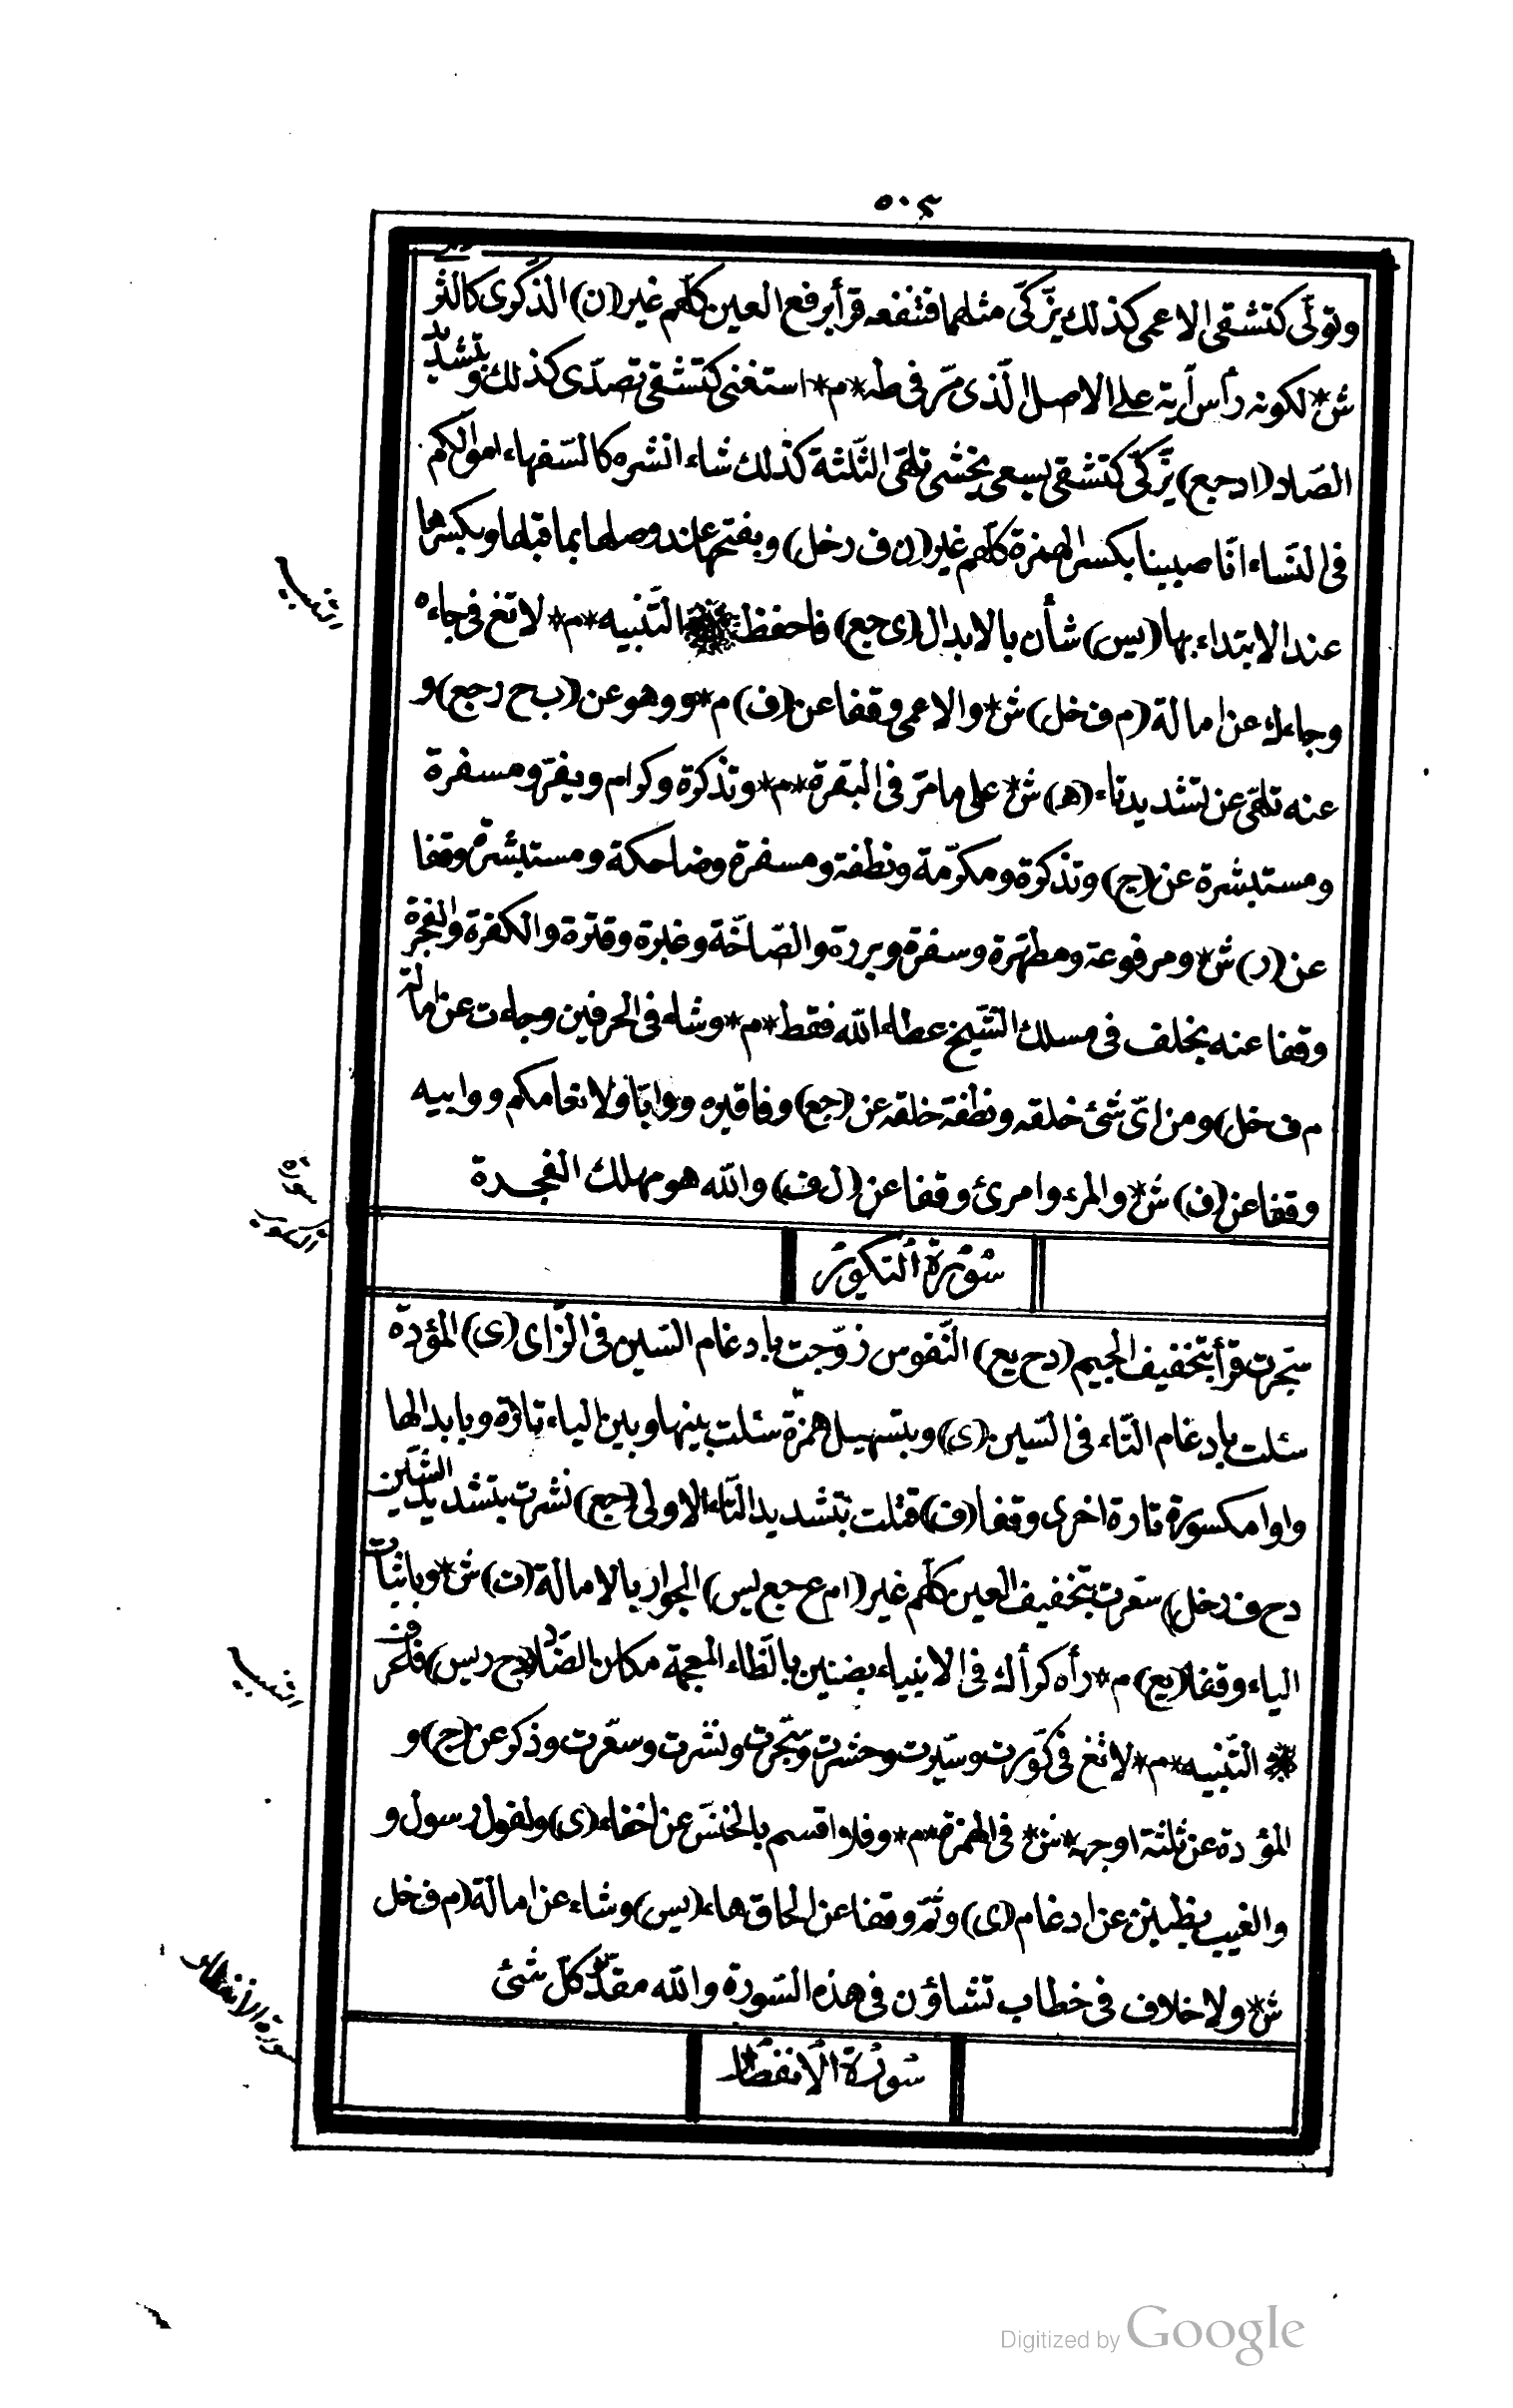 ٥٠٤
وتولّى كتشقى الاعمى كذلك يزّكّى مثلهما فتنفعه قرأ برفع العين كلّهم غير (ن) الذّكرى كالثر
ش* لكونه رأس آية على الاصل الّذى مرّ فى طه *م* استغنى كتشقى تصدّى كذلك وبتشديد
الصّاد (ا د جع) يزّكّى كتشقى يسعى يخشى تلهّى الثّلثة كذلك شاء انشره كالسّفهاء اموالكم
فى النّساء انّا صببنا بكسر الهمزة كلّهم غير (ن ف ر خل) وبفتحها عند وصلها بما قبلها وبكسرها
عند الابتداء بها (يس) شأن بالابدال (ى جع) فاحفظ التّنبيه *م* لا تغ فى جاءه
وجاءك عن امالة (م ف خل) ش* والاعمى وقفا عن (ف) م* و وهو عن (ب ح ر جع) و
عنه تلهّى عن تشديد تاء (ه) ش* على ما مرّ فى البقرة *م* وتذكرة وكرام ويفرّ ومسفرة
ومستبشرة عن (ج) وتذكرة ومكرّمة ونطفة ومسفرة وضاحكة ومستبشرة وقفا
عن (ر) ش* ومرفوعة ومطهّرة وسفرة وبررة والصّاخّة وغبرة وقترة والكفرة والفجرة
وقفا عنه بخلف فى مسلك الشّيخ عطاء الله فقط *م* وشاء فى الحرفين وجاءت عن امالة
م ف خل) ومن اىّ شئ خلقه ونطفة خلقه عن (جع) وفاقبره و وابّا ولانعامكم و وابيه
وقفا عن (ف) ش* والمرء وامرئ وقفا عن (ل ف) والله هو مهلك الفجرة
سُوْرَةُ التَّكْوِيْرِ
سجّرت قرأ بتخفيف الجيم (د ح يع) النّفوس زوّجت بادغام السّين فى الزّاى (ى) المؤدة
سئلت بادغام التّاء فى السّين (ى) وبتسهيل همزة سئلت بينها وبين الياء تارة وبابدالها
واوا مكسورة تارة اخرى وقفا (ف) قتلت بتشديد التّاء الاولى (جع) نشرت بتشديد الشّين
د ح ف ر خل) سعّرت بتخفيف العين كلّهم غير (ا م ع جع يس) الجوار بالامالة (ت) ش* وباثبات
الياء وقفا (يع) م* رأه كرأك فى الانبياء بضنين بالظّاء المعجمة مكان الضّاد (د ح ر يس)
التّنبيه *م* لا تغ فى كوّرت وسيّرت وحشرت وسجّرت ونشرت وسعّرت وذكر عن (ج) و
المؤدة عن ثلثة اوجه *ش* فى الهمزة *م* وفلا اقسم بالخنّس عن اخفاء (ى) ولقول رسول و
والغيب بظنين عن ادغام (ى) وثمّ وقفا عن الحاق هاء (يس) وشاء عن امالة (م ف خل
ش* ولا خلاف فى خطاب تشاؤن فى هذه السّورة والله مقدّر كلّ شئ
سُوْرَةُ الْاِنْفِطَارِ
التنبيه
سورة
التكوير
التنبيه
سورة الانفطار
Digitized by Google